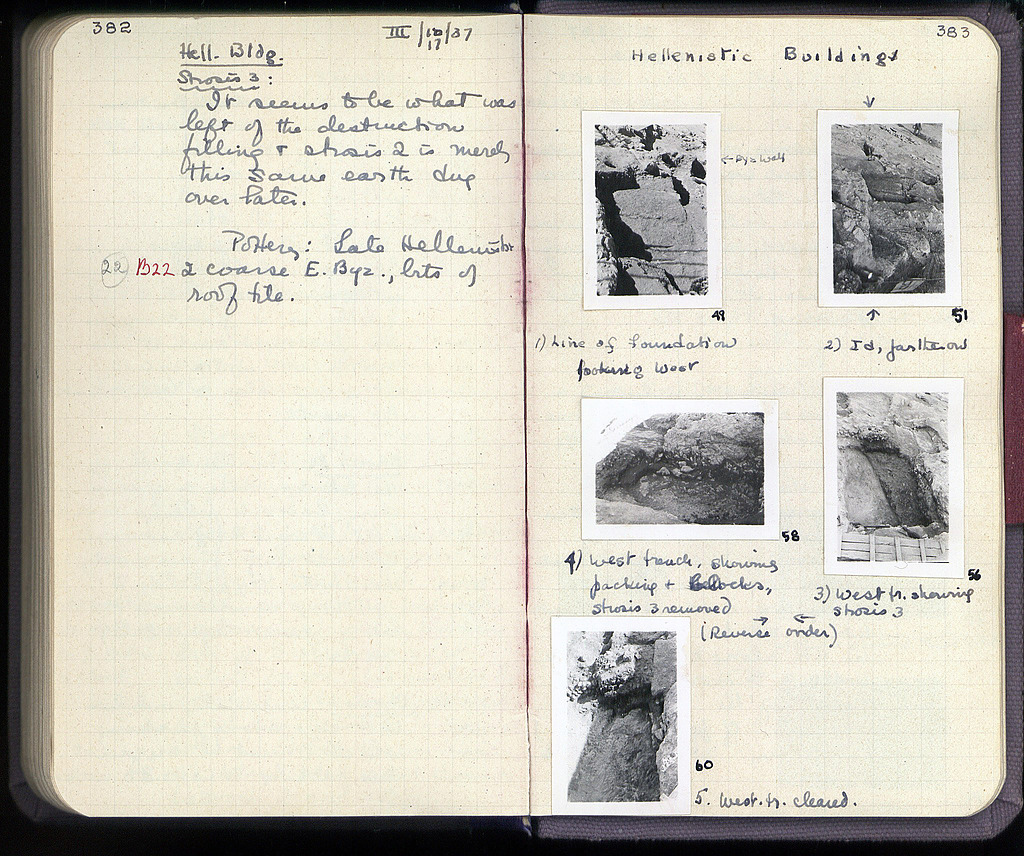 382
III/16/37
17
Hell. Bldg.
Strosis 3:
It seems to be what was
left of the destruction
filling + strosis 2 is merely
this same earth dug
over later.
Pottery: Late Hellenistic
22 B22 2 coarse E. Byz., bits of
roof tile.
383
Hellenistic Buildings
← Byz Wall
49
51
1) Line of foundation
looking west
2) Id, farther on
58
56
4) West trench, showing
packing + blocks,
strosis 3 removed
3) West tr. showing
strosis 3
(Reverse order)
60
5. West. tr. cleared.